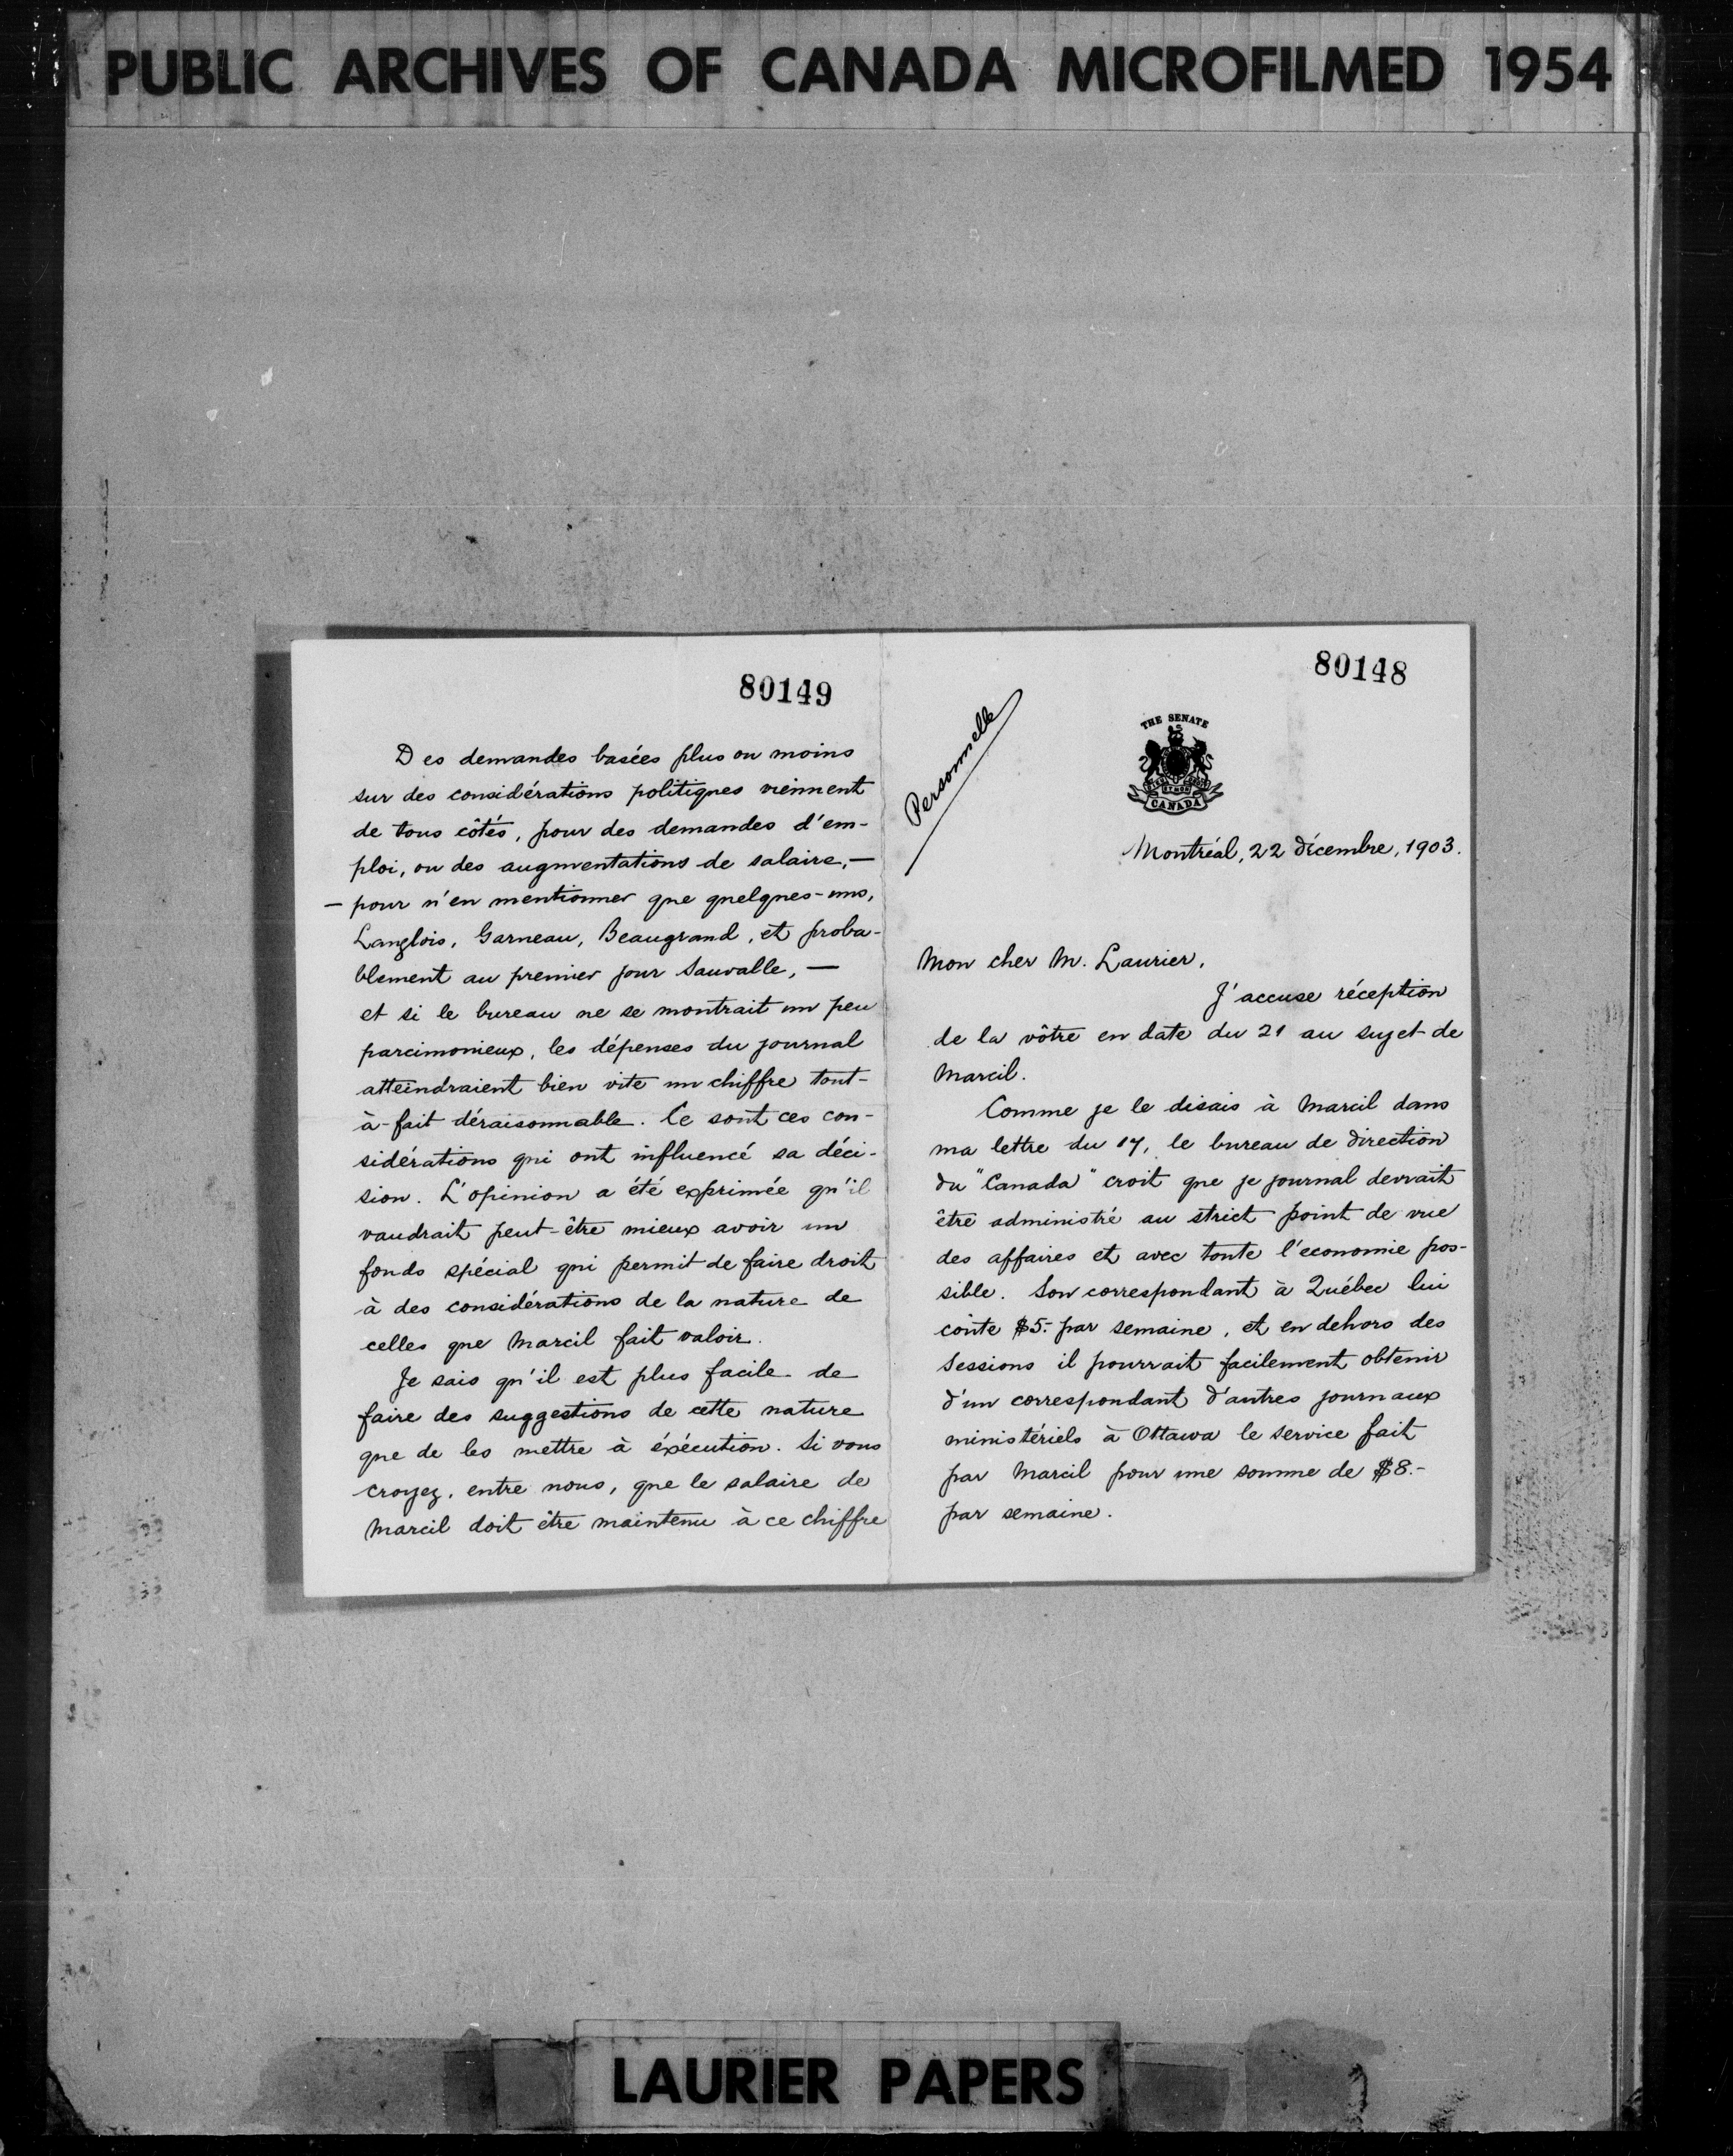 PUBLIC ARCHIVES OF CANADA MICROFILMED 1954
80148
Personnelle
THE SENATE
CANADA
Montréal, 22 décembre, 1903.
Mon cher M. Laurier,
J'accuse réception
de la vôtre en date du 21 au sujet de
Marcil.
Comme je le disais à Marcil dans
ma lettre du 17, le bureau de direction
du "Canada" croit que je journal devrait
être administré au strict point de vue
des affaires et avec toute l'economie pos-
sible. Son correspondant à Québec lui
coûte $5.- par semaine, et en dehors des
sessions il pourrait facilement obtenir
d'un correspondant d'autres journaux
ministériels à Ottawa le service fait
par Marcil pour une somme de $8.-
par semaine.
80149
Des demandes basées plus ou moins
sur des considérations politiques viennent
de tous côtés, pour des demandes d'em-
ploi, ou des augmentations de salaire,—
— pour n'en mentionner que quelques-uns,
Langlois, Garneau, Beaugrand, et proba-
blement au premier jour Sauvalle, —
et si le bureau ne se montrait un peu
parcimonieux, les dépenses du journal
atteindraient bien vite un chiffre tout-
à-fait déraisonnable. Ce sont ces con-
sidérations qui ont influencé sa déci-
sion. L'opinion a été exprimée qu'il
vaudrait peut-être mieux avoir un
fonds spécial qui permit de faire droit
à des considérations de la nature de
celles que Marcil fait valoir.
Je sais qu'il est plus facile de
faire des suggestions de cette nature
que de les mettre à éxécution. Si vous
croyez, entre nous, que le salaire de
Marcil doit être maintenu à ce chiffre
LAURIER PAPERS